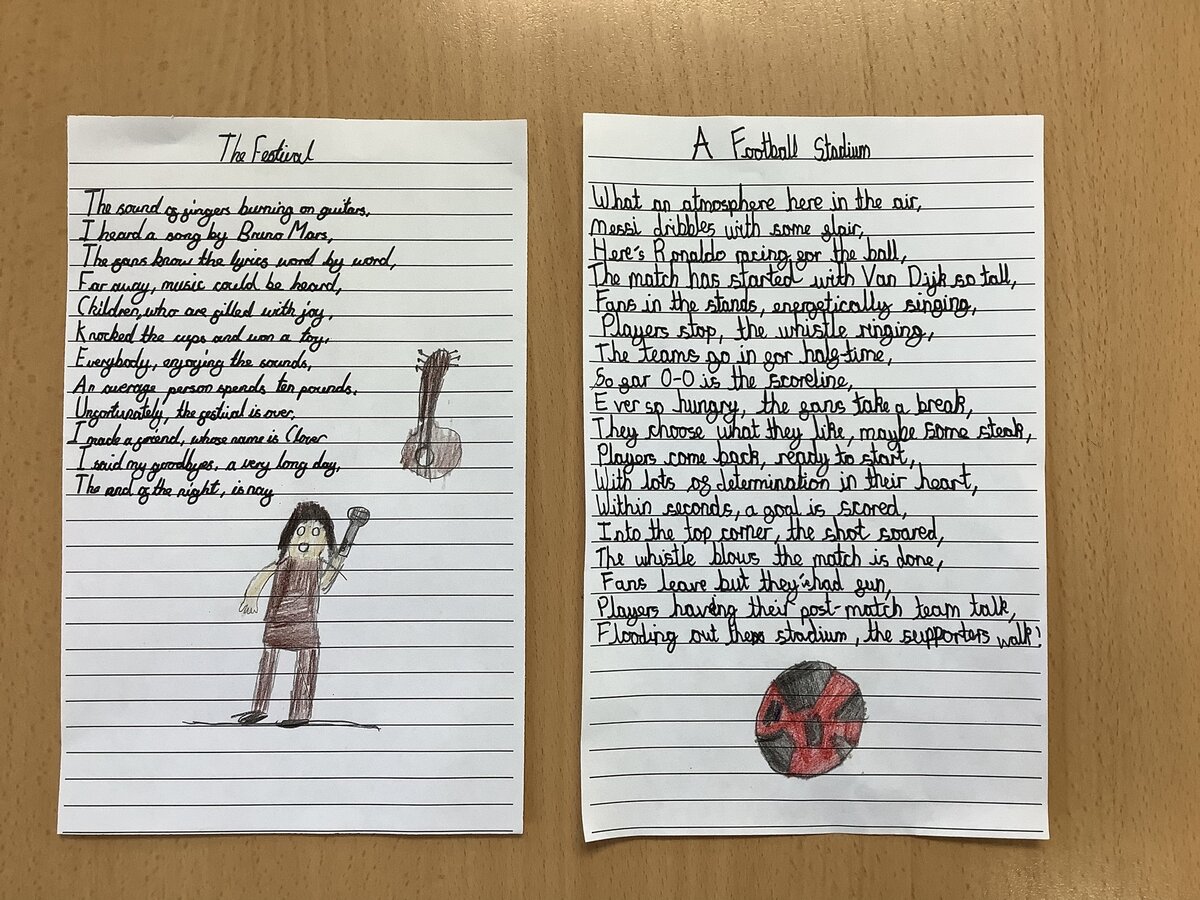 The Festival
The sound of fingers burning on guitars,
I heard a song by Bruno Mars,
The fans know the lyrics word by word,
Far away, music could be heard,
Children, who are filled with joy,
Knocked the cups and won a toy,
Everybody, enjoying the sounds,
An average person spends ten pounds.
Unfortunately, the festival is over,
I made a friend, whose name is Clover
I said my goodbyes, a very long day,
The end of the night, is nay
A Football Stadium
What an atmosphere here in the air,
Messi dribbles with some flair,
Here's Ronaldo racing for the ball,
The match has started with Van Dijk so tall,
Fans in the stands, energetically singing,
Players stop, the whistle ringing,
The teams go in for half-time,
So far 0-0 is the scoreline,
Ever so hungry, the fans take a break,
They choose what they like, maybe some steak,
Players come back, ready to start,
With lots of determination in their heart,
Within seconds, a goal is scored,
Into the top corner, the shot soared,
The whistle blows the match is done,
Fans leave but they had fun,
Players having their post-match team talk,
Flooding out the stadium, the supporters walk!